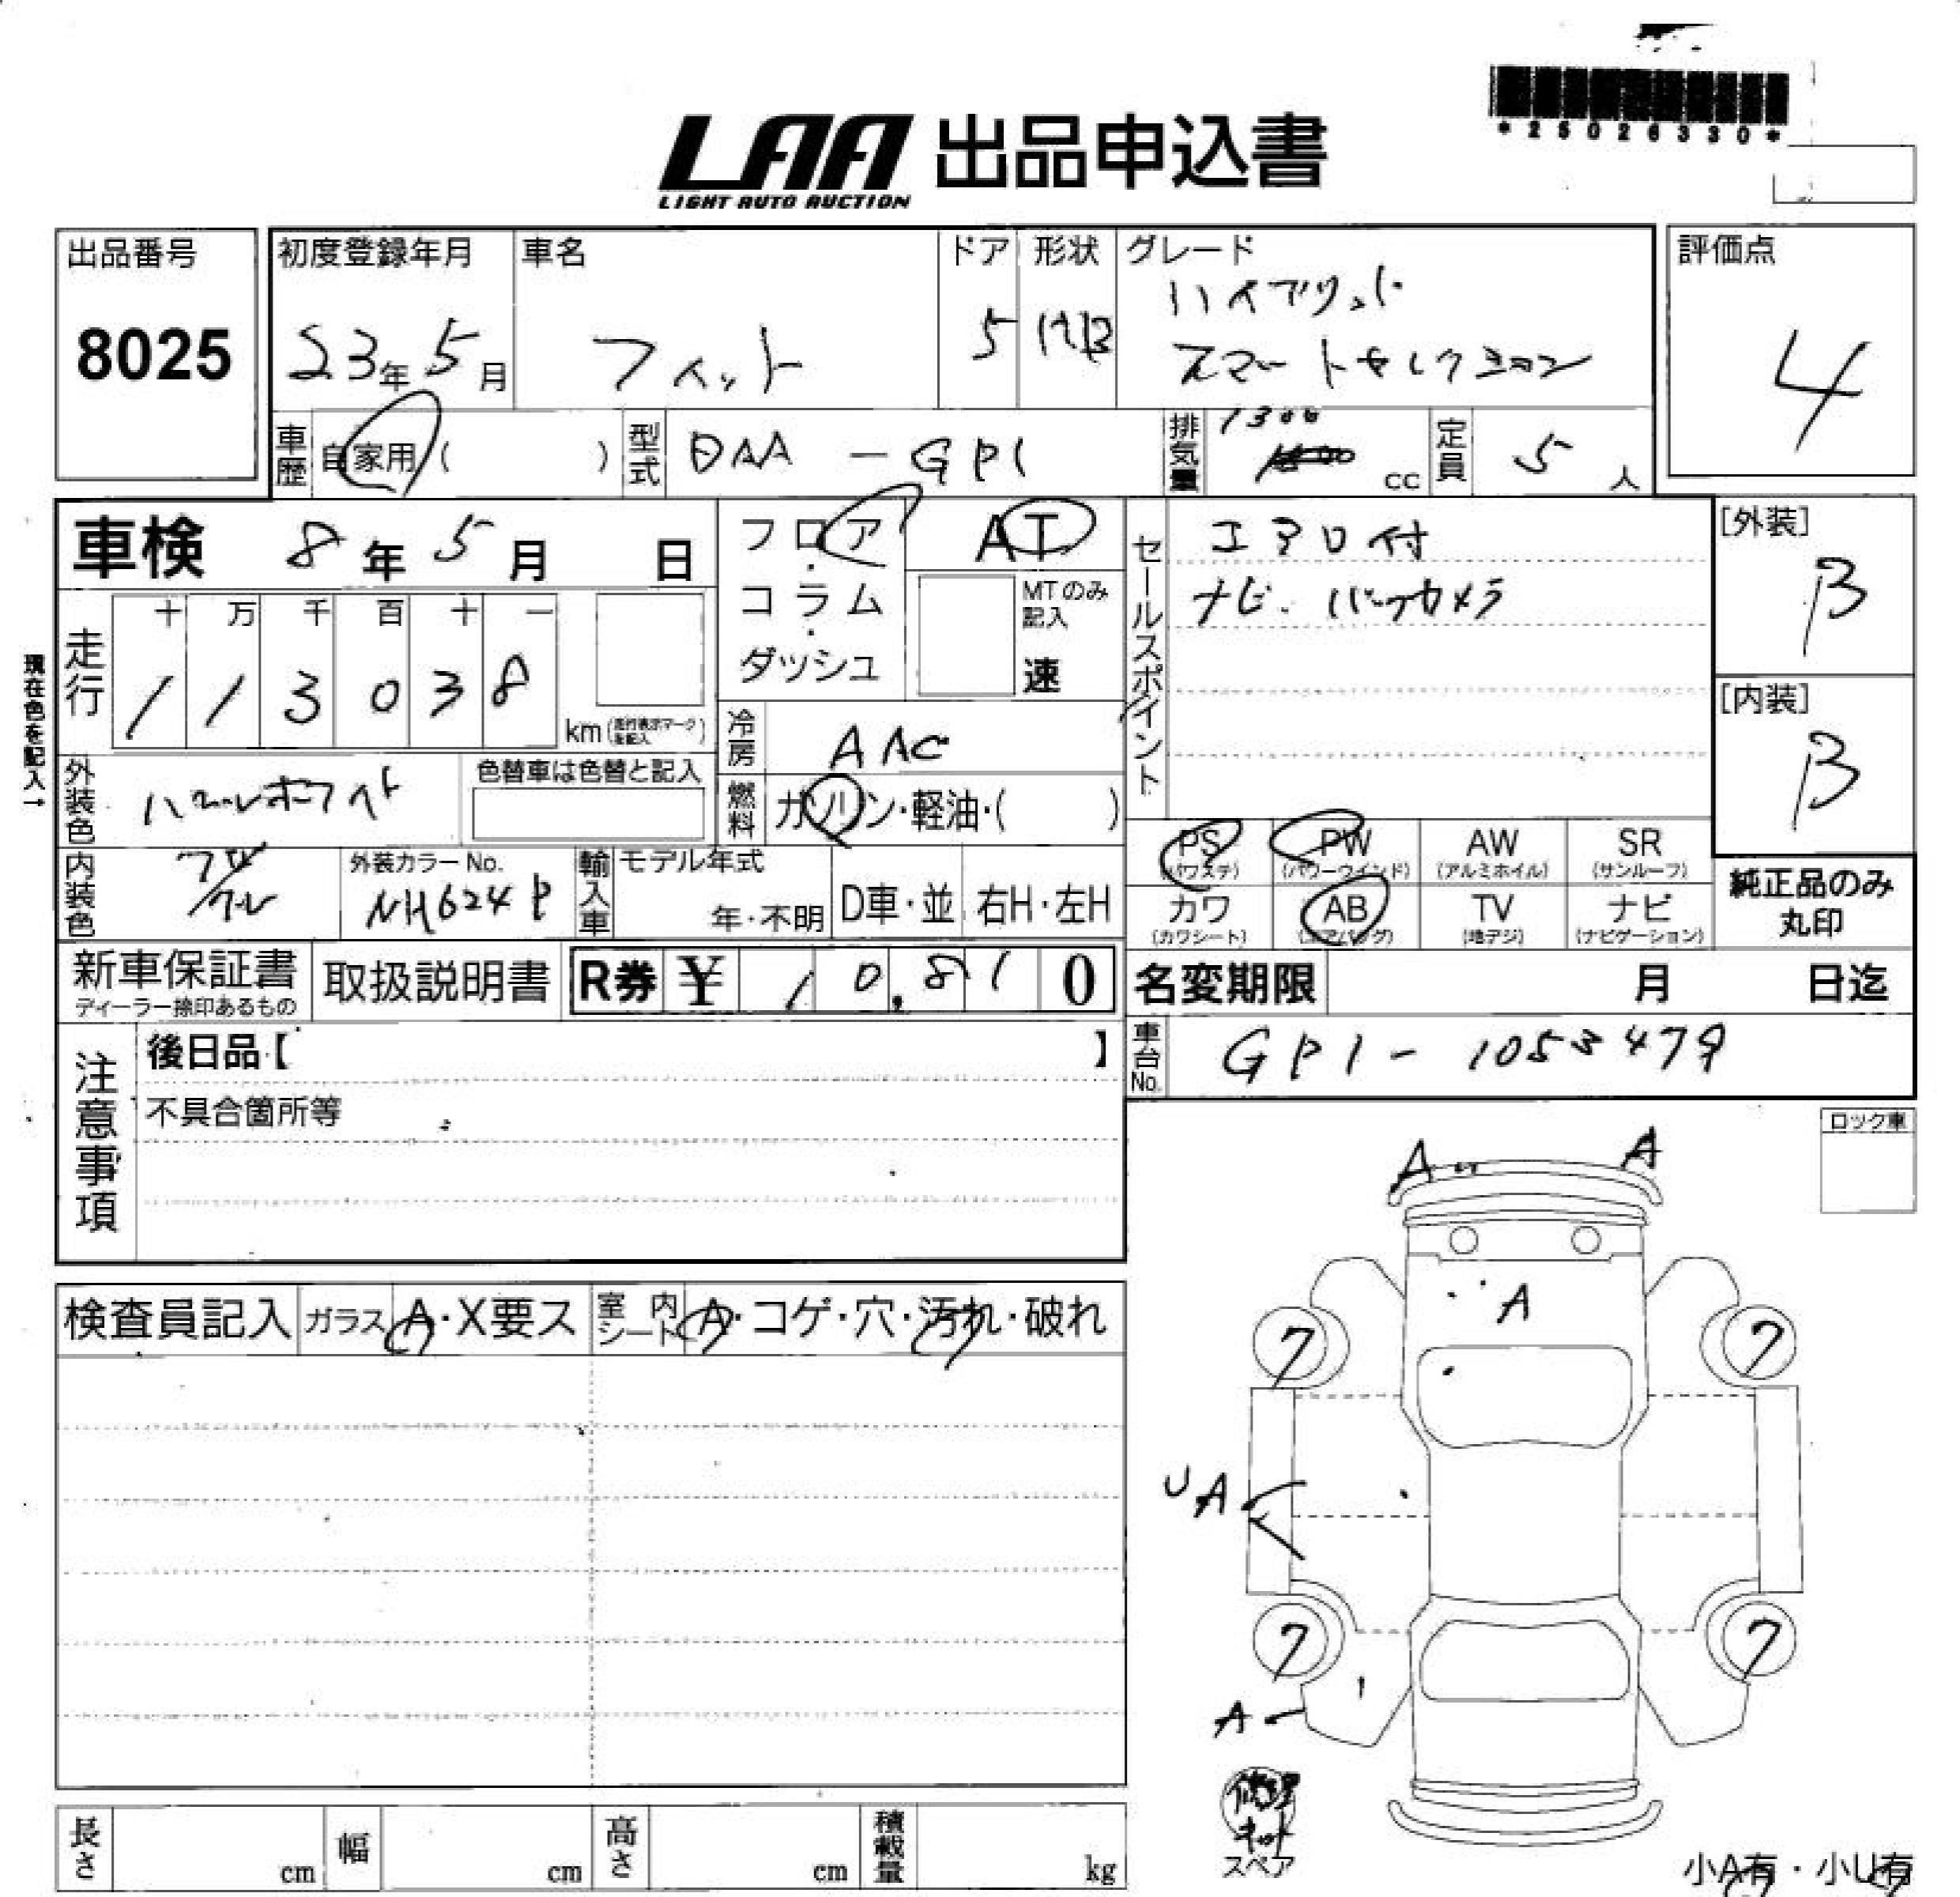 *25026330*
LAA 出品申込書
LIGHT AUTO AUCTION
出品番号
8025
初度登録年月
23年5月
車名
フィット
ドア
5
形状
HB
グレード
ハイブリッド
スマートセレクション
評価点
4
車歴
自家用( )
型式
DAA-GP1
排気量
1300
cc
定員
5人
車検 8年5月 日
フロア・コラム・ダッシュ
AT
MTのみ記入
速
セールスポイント
エアロ付
ナビ. バックカメラ
[外装]
B
[内装]
B
現在色を記入→
走行
十 万 千 百 十 一
1 1 3 0 3 8
km(走行表示マークを記入)
冷房
AAC
外装色
パールホワイト
色替車は色替と記入
燃料
ガソリン・軽油・( )
PS
(パワステ)
PW
(パワーウインド)
AW
(アルミホイル)
SR
(サンルーフ)
カワ
(カワシート)
AB
(エアバッグ)
TV
(地デジ)
ナビ
(ナビゲーション)
純正品のみ
丸印
内装色
外装カラーNo.
NH624P
輸入車
モデル年式
年・不明
D車・並
右H・左H
新車保証書
ディーラー捺印あるもの
取扱説明書
R券 ¥ 10,810
名変期限 月 日迄
車台No.
GP1-1053479
注意事項
後日品【 】
不具合箇所等
ロック車
検査員記入
ガラス A・X要ス
室内シート A・コゲ・穴・汚れ・破れ
A
A
A
7
7
UA
7
7
A
修理
キット
スペア
長さ cm
幅 cm
高さ cm
積載量 kg
小A有・小U有